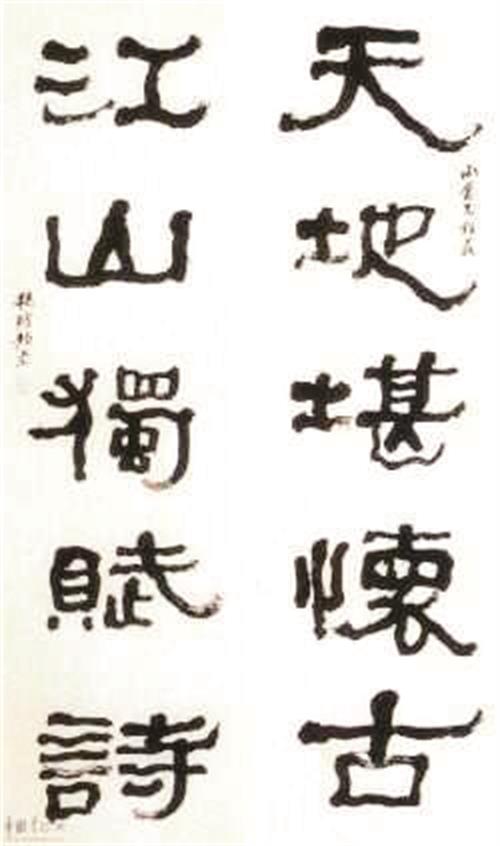 天地堪懷古
江山獨賦詩